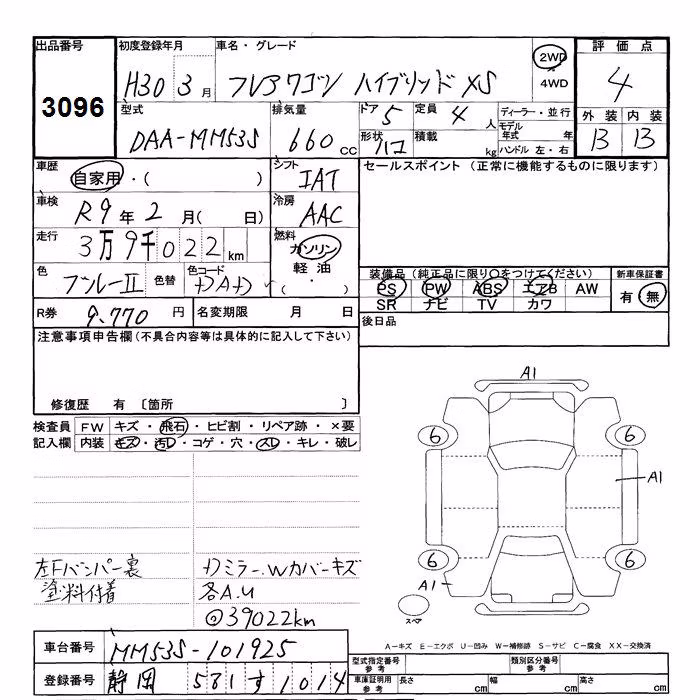 出品番号 初度登録年月 車名・グレード 評価点
3096 H30 3月 フレアワゴン ハイブリッド XS 2WD・4WD 4
型式 排気量 ドア 5 定員 4人 ディーラー・並行 外装 内装
DAA-MM53S 660cc 形状 ハコ 積載 kg モデル年式 年 ハンドル 左・右 B B
車歴 自家用・( ) シフト IAT セールスポイント (正常に機能するものに限ります)
車検 R9年2月( 日) 冷房 AAC
走行 3万9千022km 燃料 ガソリン 軽油 ( ・ )
装備品 (純正品に限り○をつけてください) 新車保証書
色 ブルーII 色替 色コード PS PW ABS エアB AW 有 無
SR ナビ TV カワ
R券 9,770円 名変期限 月 日 後日品
注意事項申告欄(不具合内容等は具体的に記入して下さい)
修復歴 有 〔箇所 〕
検査員 FW キズ・飛石・ヒビ割・リペア跡・×要
記入欄 内装 キズ・汚レ・コゲ・穴・スレ・キレ・破レ
A1
6 6
A1
6 6
A1
スペア
左Fバンパー裏
塗料付着
ミラー、Wカバーキズ
各A.U
◎39022km
A-キズ E-エクボ U-凹み W-補修跡 S-サビ C-腐食 XX-交換済
車台番号 MM53S-101925 型式指定番号 参考 類別区分番号 参考
登録番号 静岡 581 す 1014 車庫証明用 参考 長さ cm 幅 cm 高さ cm